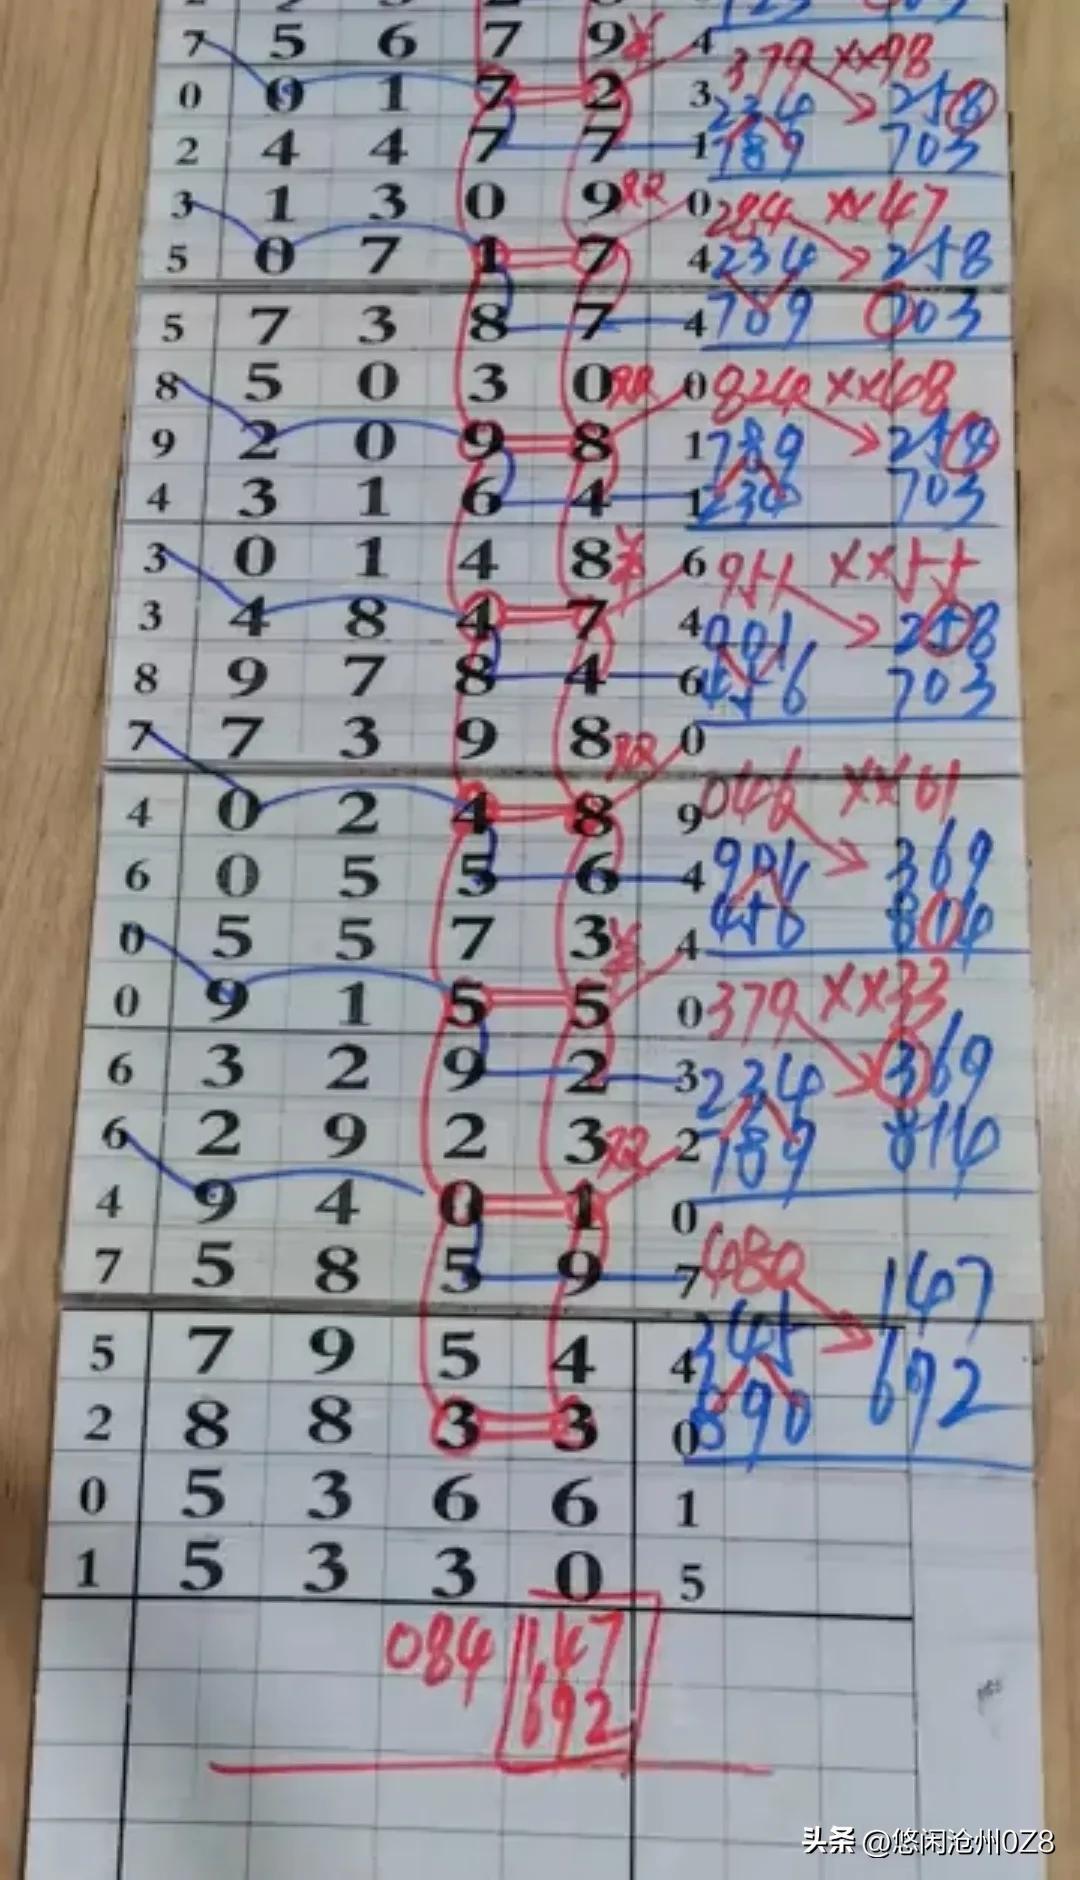 7 5 6 7 9 4 379 ××98
0 0 1 7 2 3 234 258
2 4 4 7 7 1 789 703
3 1 3 0 9 0 284 ××47
5 0 7 1 7 4 234 258
5 7 3 8 7 4 789 703
8 5 0 3 0 0 824 ××68
9 2 0 9 8 1 789 258
4 3 1 6 4 1 234 703
3 0 1 4 8 6 951 ××55
3 4 8 4 7 4 901 258
8 9 7 8 4 6 456 703
7 7 3 9 8 0
4 0 2 4 8 9 046 ××01
6 0 5 5 6 4 901 369
0 5 5 7 3 4 456 814
0 9 1 5 5 0 379 ××33
6 3 2 9 2 3 234 369
6 2 9 2 3 2 789 814
4 9 4 0 1 0
7 5 8 5 9 7 480 147
5 7 9 5 4 4 345 692
2 8 8 3 3 0 890
0 5 3 6 6 1
1 5 3 3 0 5
084 147
692
头条 @悠闲沧州0Z8